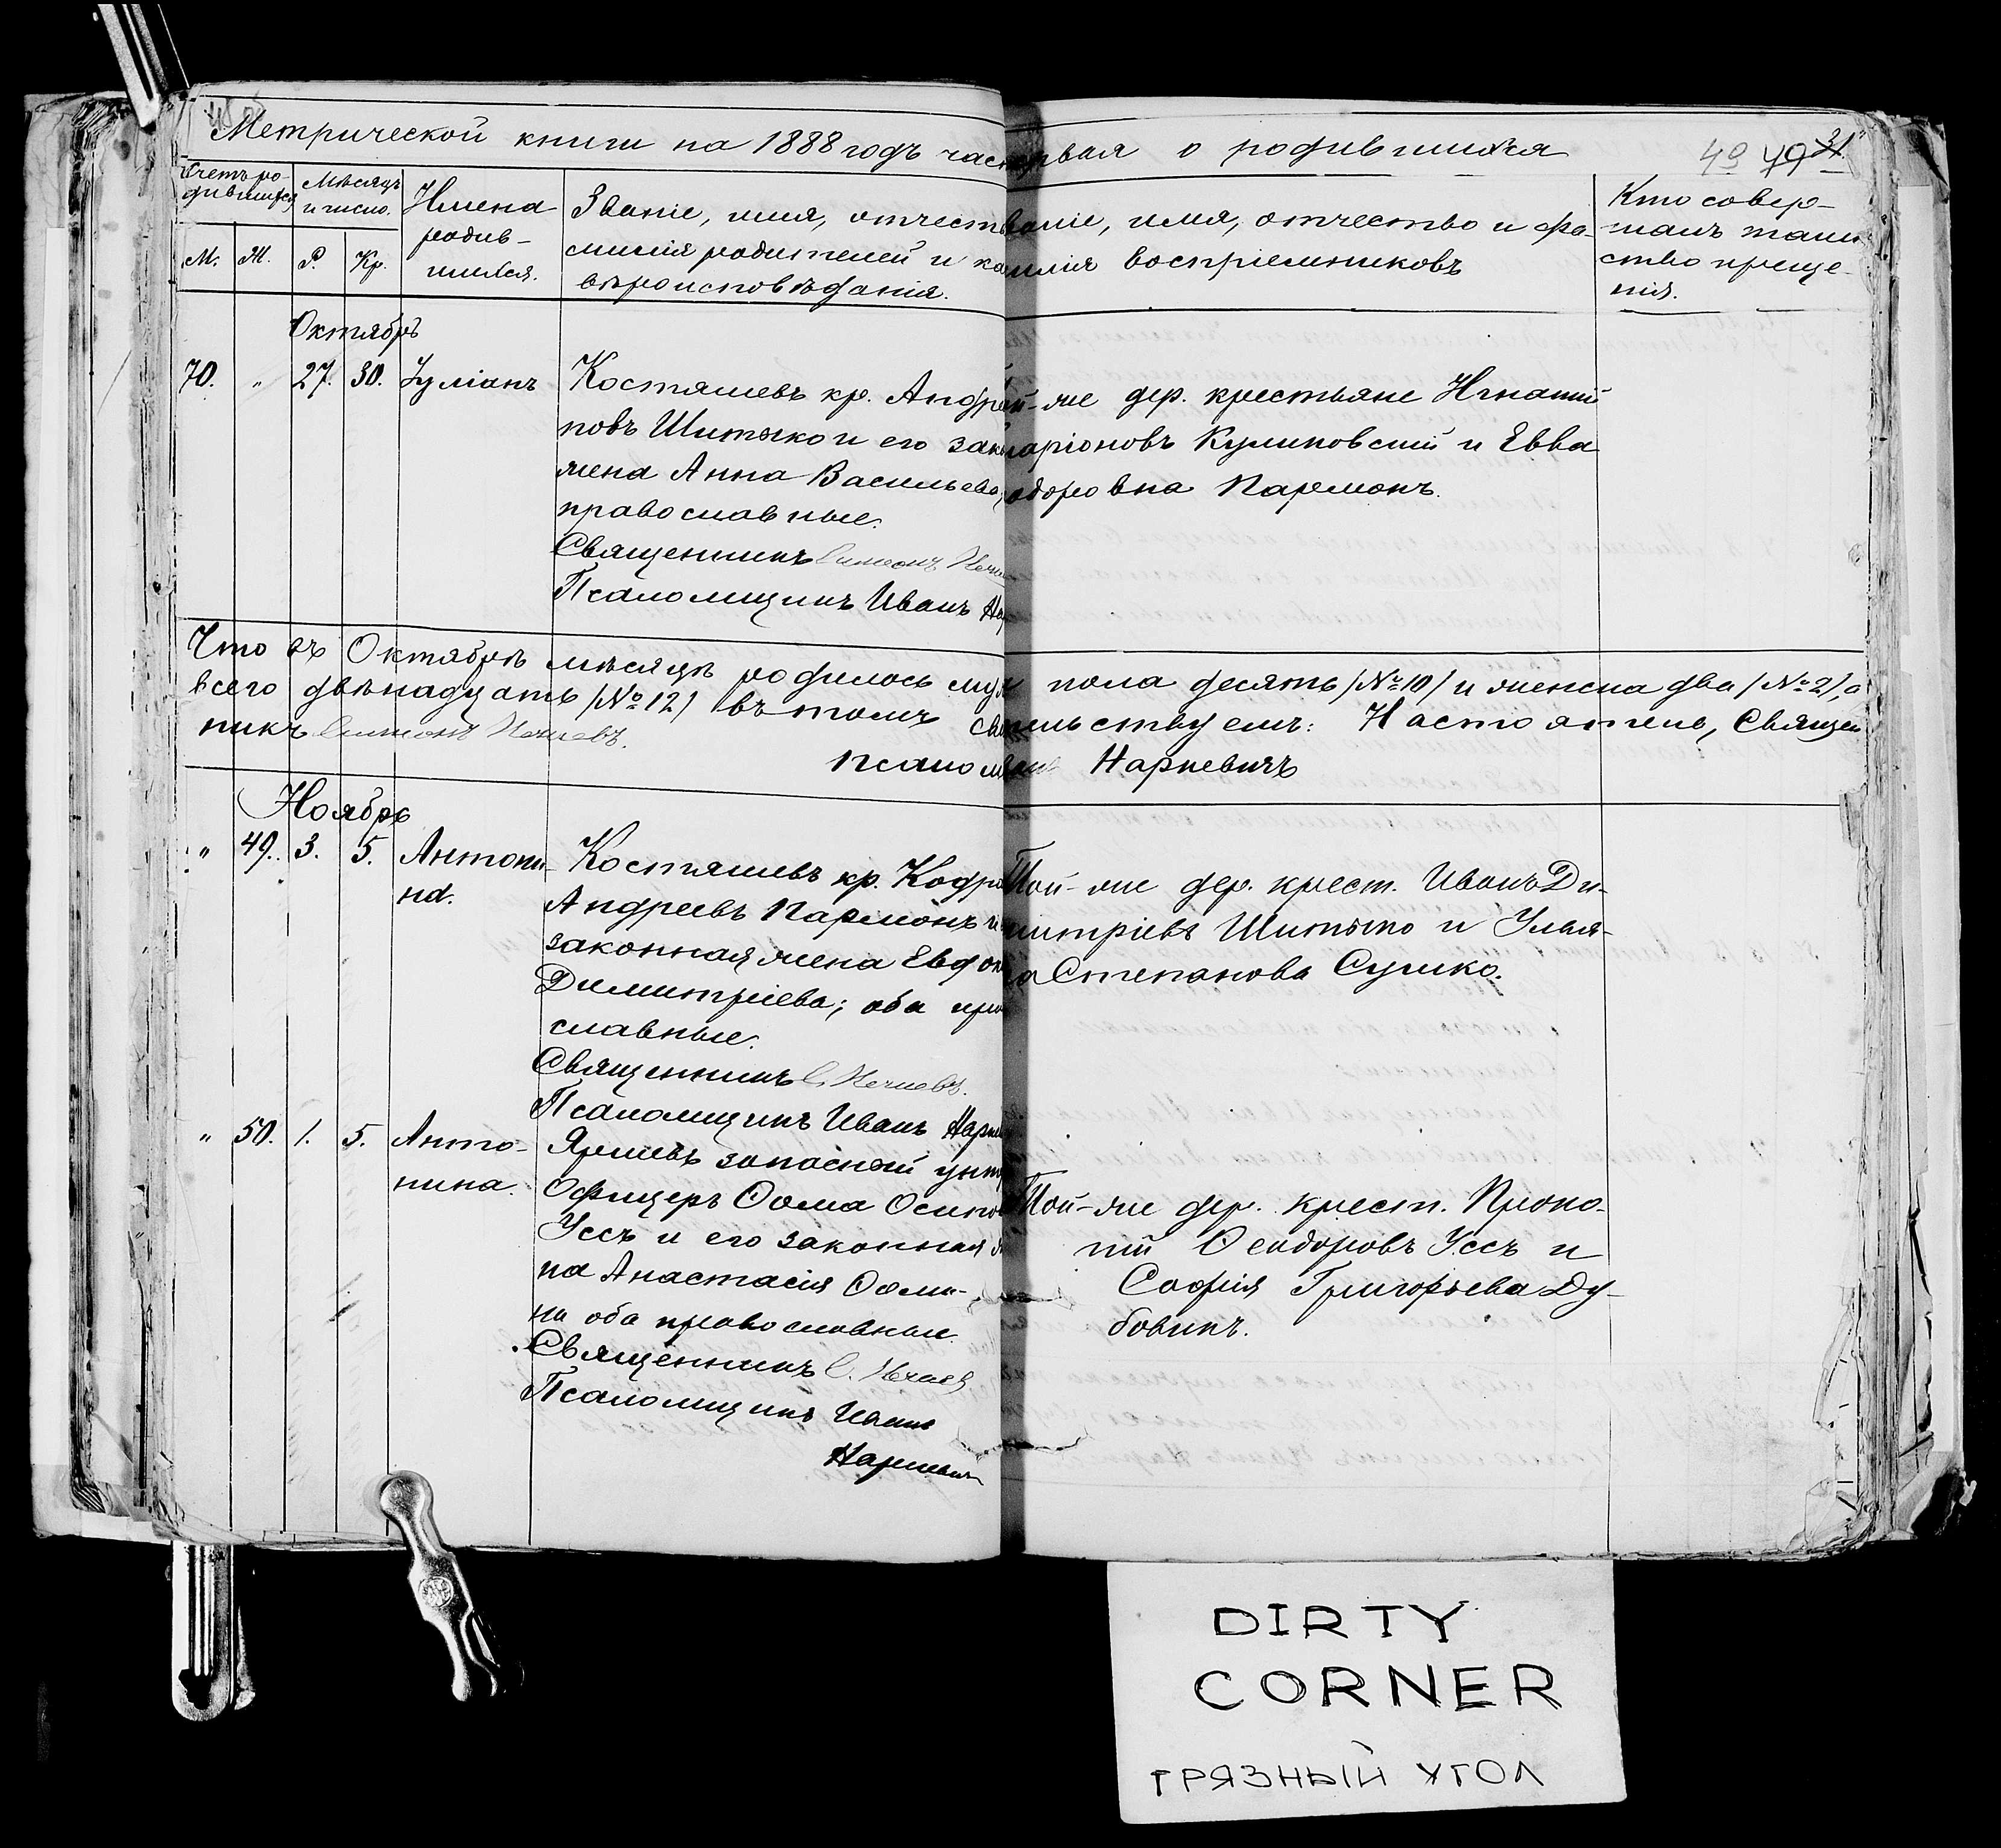 Метрической книги на 1888 годъ часть первая о родившихся
49 31
Счетъ ро-
дившихся
Мѣсяцъ
и число.
М. Ж. Р. Кр.
Имена
родив-
шихся.
Званіе, имя, отчество
милія родителей и ка
вѣроисповѣданія.
Званіе, имя, отчество и фа-
милія воспріемниковъ
Кто совер-
шалъ таин
ство креще-
нія.
Октябрь
70. " 27. 30. Іуліанъ
Костяшевъ кр. Андрей
новъ Шитько и его зако
жена Анна Васильева,
православные.
Священникъ
Псаломщикъ Иванъ
же дер. крестьяне Игнатій
Куликовскій и Евва
Пармонъ.
Что въ Октябрѣ мѣсяцѣ родилось муж пола десять (№ 10) и женска два (№ 2), а
всего двѣнадцать (№ 12) въ томъ свидѣтельствуемъ: Настоятель, Священ
никъ
Псалом Наркевичъ
Ноябрь
" 49. 3. 5. Антони-
на.
Костяшевъ кр. Кодра
Андреевъ Пармонъ и
законная жена Евдок
Димитріева; оба пра
славные.
Священникъ
Псаломщикъ Иванъ Нарке
Той-же дер. крест. Иванъ Ди-
митріевъ Шитько и Улья-
на Степанова Сушко.
" 50. 1. 5. Анто-
нина.
запасный унт
Офицеръ Ѳома Осипов
Уссъ и его законная
на Анастасія Ѳоми-
на оба православные.
Священникъ
Псаломщикъ Иванъ
Наркевичъ
Той-же дер. крест. Проко-
пій Ѳеодоровъ Уссъ и
Софія Григорьева Ду-
бовикъ.
DIRTY
CORNER
ГРЯЗНЫЙ УГОЛ